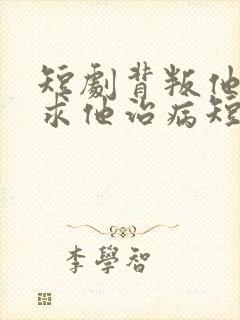 短劇背叛他
求他治病短
李學智